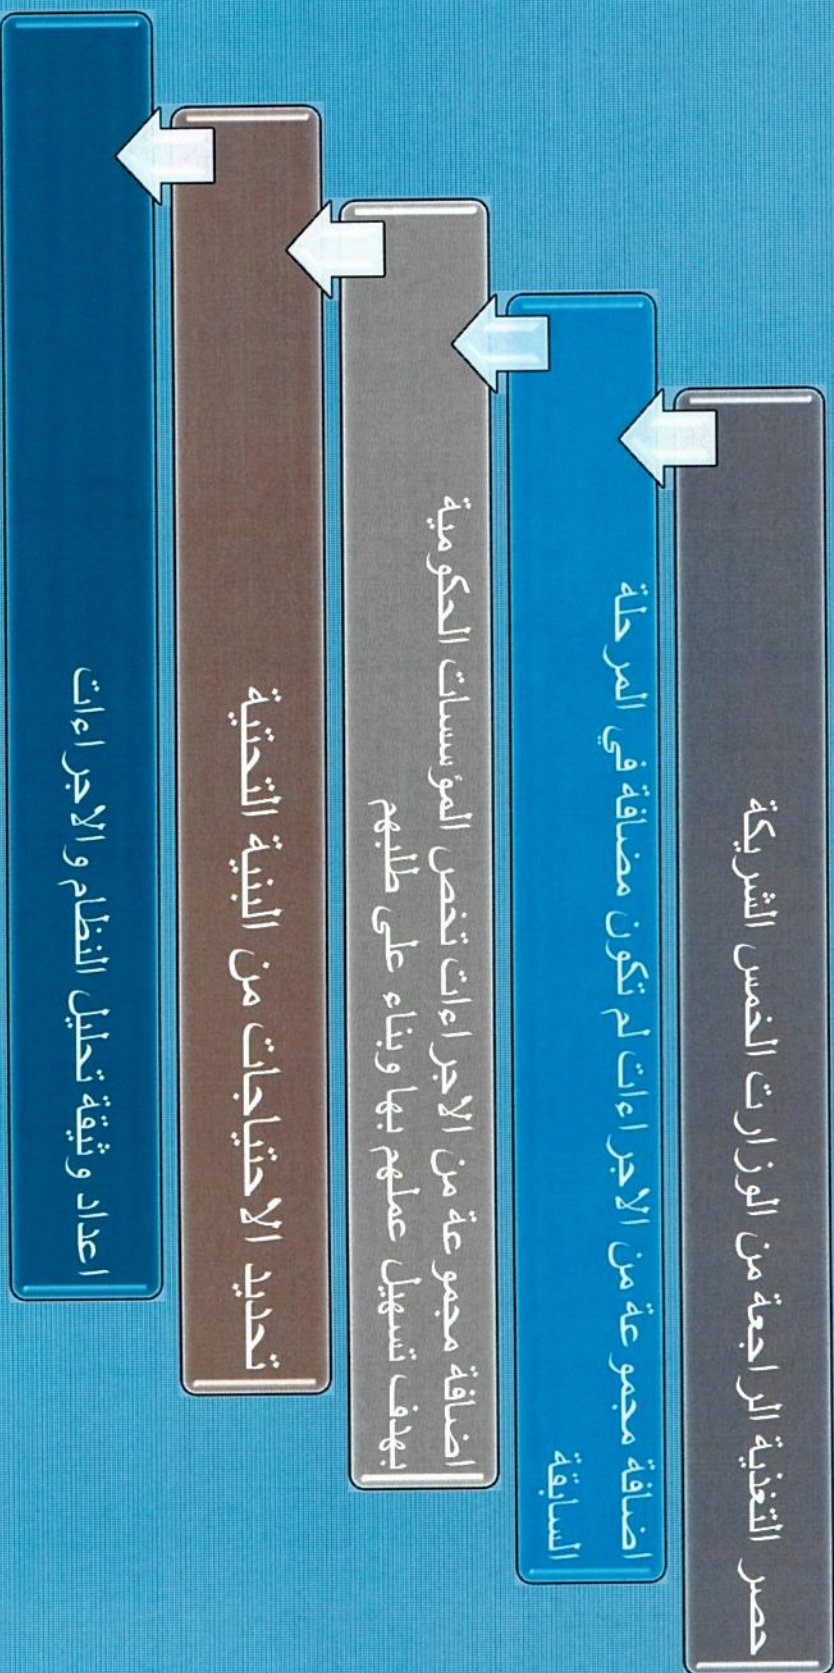 حصر التغذية الراجعة من الوزارت الخمس الشريكة
اضافة مجموعة من الاجراءات لم تكون مضافة في المرحلة
السابقة
اضافة مجموعة من الاجراءات تخص المؤسسات الحكومية
بهدف تسهيل عملهم بها وبناء على طلبهم
تحديد الاحتياجات من البنية التحتية
اعداد وثيقة تحليل النظام والاجراءات